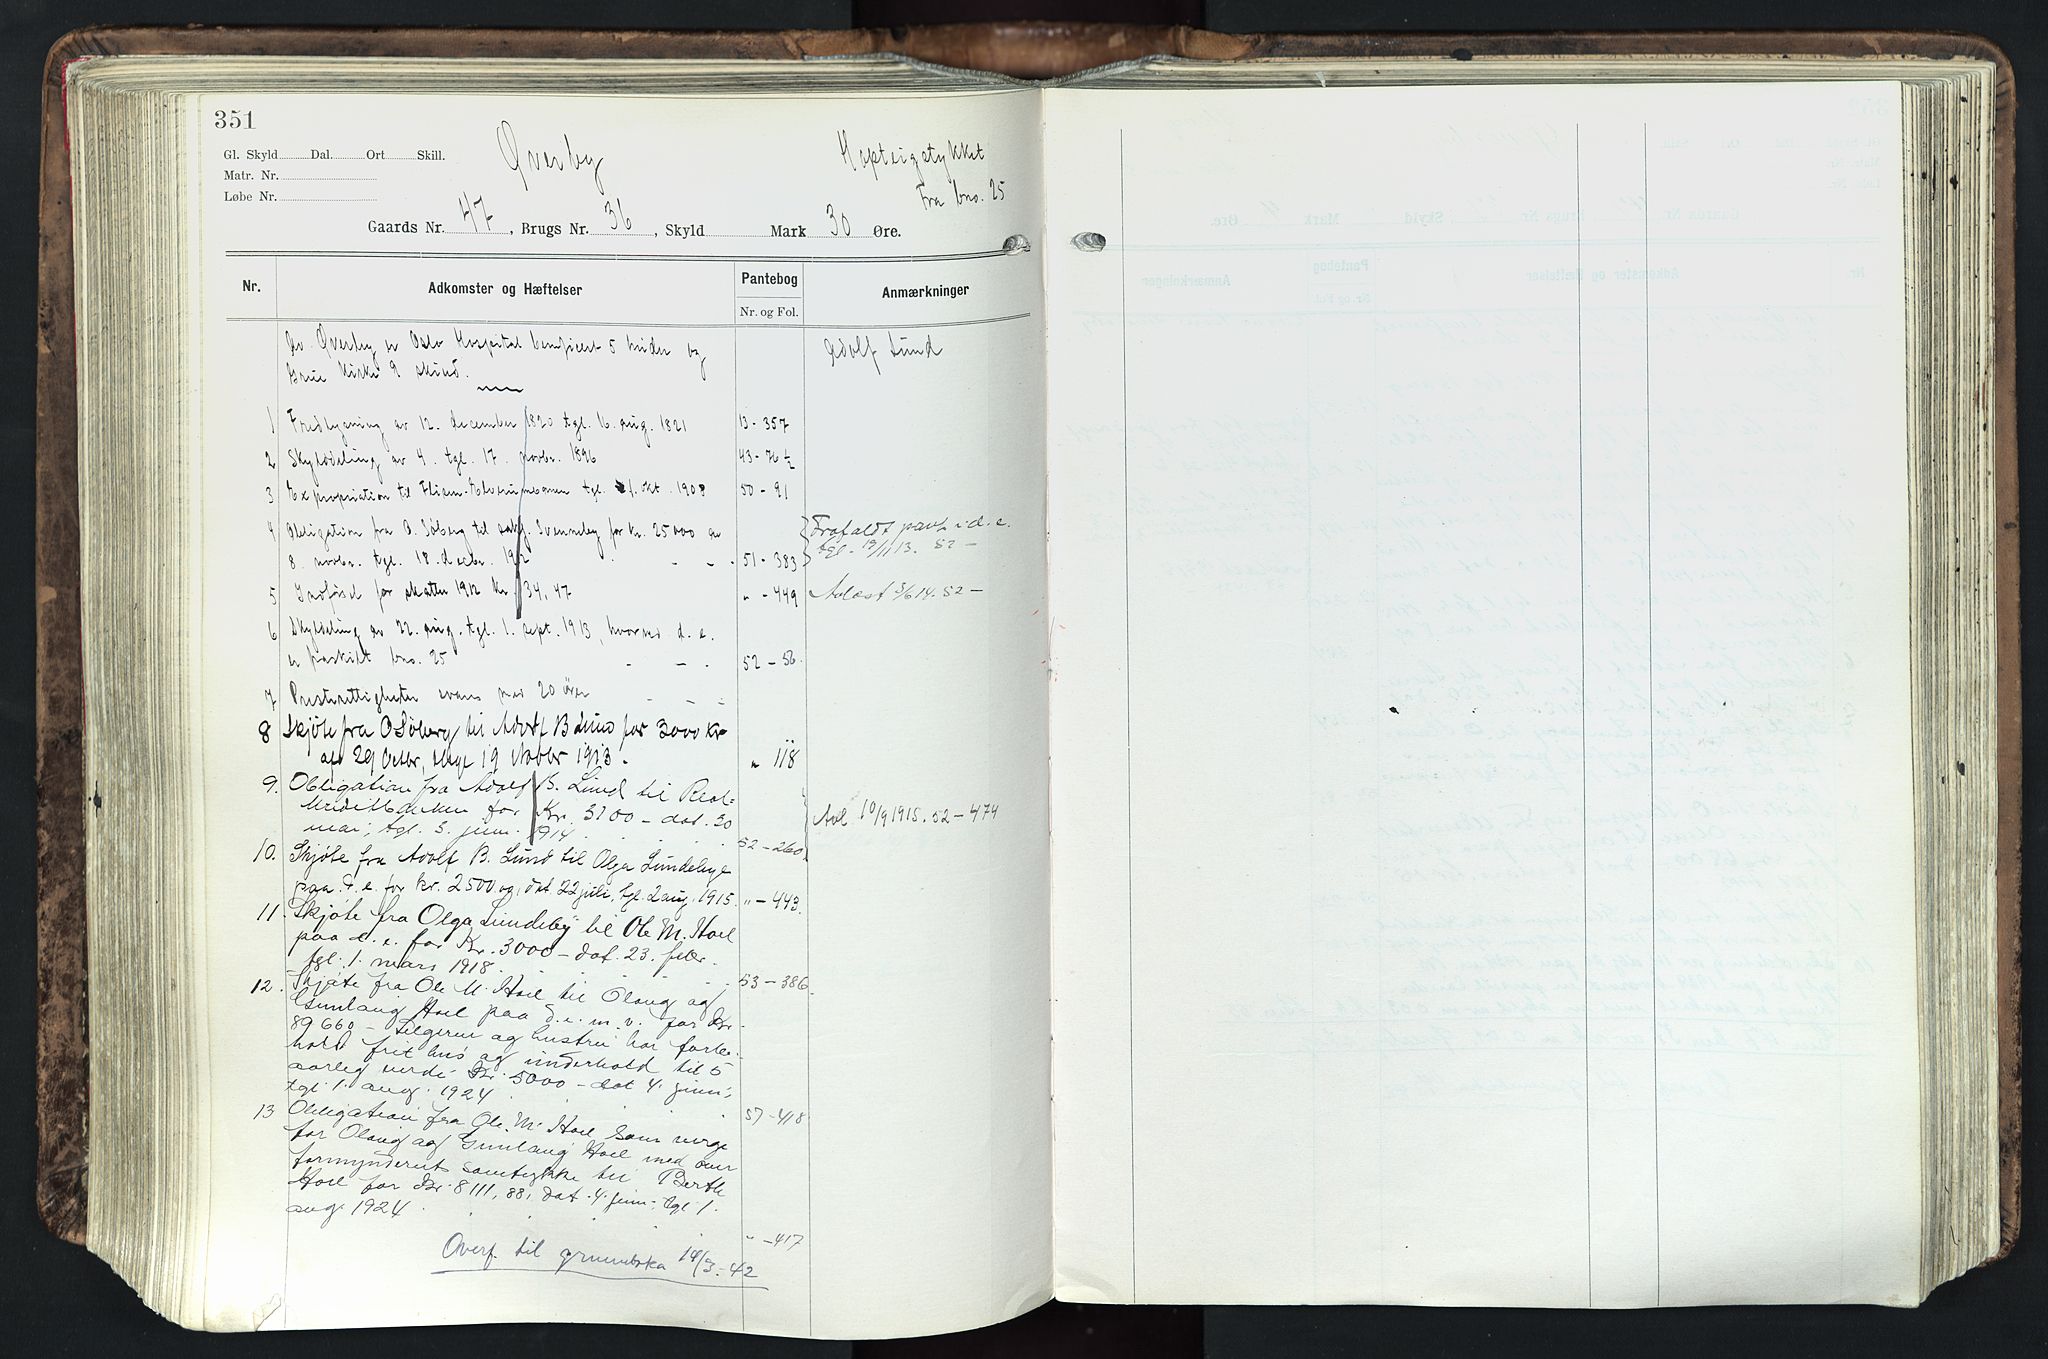 351
Gl. Skyld Dal. Ort Skill.
Matr. Nr.
Løbe Nr.
Øverby
Fra bno. 25
Gaards Nr. 47, Brugs Nr. 36, Skyld Mark 30 Øre.
Nr. Adkomster og Hæftelser Pantebog Anmærkninger
Nr. og Fol.
Av Øverby er Oslo Hospital beneficert 5 huder og Adolf Lund
kirke 9 skind.
1 Fredlysning av 12. december 1820 tgl. 16. aug. 1821 13 - 357
2 Skylddeling av 4. tgl. 17. novbr. 1896 43 - 76 ½
3 Expropriation til Flisen-Elverumbanen tgl. okt. 1908 50 - 91
4 Obligation fra O. Søberg til Svenneby for kr. 25000 av Frafaldt pant i d. e.
8. novbr. tgl. 18. decbr. 1912 51 - 383 tgl. 19/11 13. 52 -
5 for skatter 1912 kr. 34,47 " - 449 Avlæst 5/6 14. 52 -
6 Skylddeling av 22. aug. tgl. 1. sept. 1913, hvorved d. e.
er fraskilt bno. 25 52 - 56.
7 med 20 øre
8 Skjøte fra O Søberg til Adolf B Lund for 3000 Kr
af 29 Octbr, tlgt 19 Novbr 1913. " 118
9. Obligation fra Adolf B. Lund til Real-
kreditbanken for Kr. 3700 - dat. 30 Avl 10/9 1915. 52 - 474
mai, tgl. 5. juni. 1914 52 - 260
10. Skjøte fra Adolf B. Lund til Olga Lundebye
paa d. e. for kr. 2500 og, dat 22 juli, tgl. 2 aug. 1915. " - 443.
11. Skjøte fra Olga Lundeby til Ole M. Hoel
paa d. e. for Kr. 3000 - dat. 23. febr.
tgl. 1. mars 1918. 53 - 386
12. Skjøte fra Ole M. Hoel til Olaug og
Gunlaug Hoel paa d. e. m. v. for Kr.
89660 - Selgeren og hustru har forbe-
hold frit hus og underhold til 5
aarlig verdi Kr. 5000 - dat 4. juni,
tgl. 1. aug. 1924 57 - 418
13 Obligation fra Ole M. Hoel som verge
for Olaug og Gunlaug Hoel med over
formynderiets samtykke til Berthe
Hoel for Kr. 8111,88, dat. 4. juni, tgl 1.
aug. 1924. " - 417
Overf. til grunnboka 19/3-42